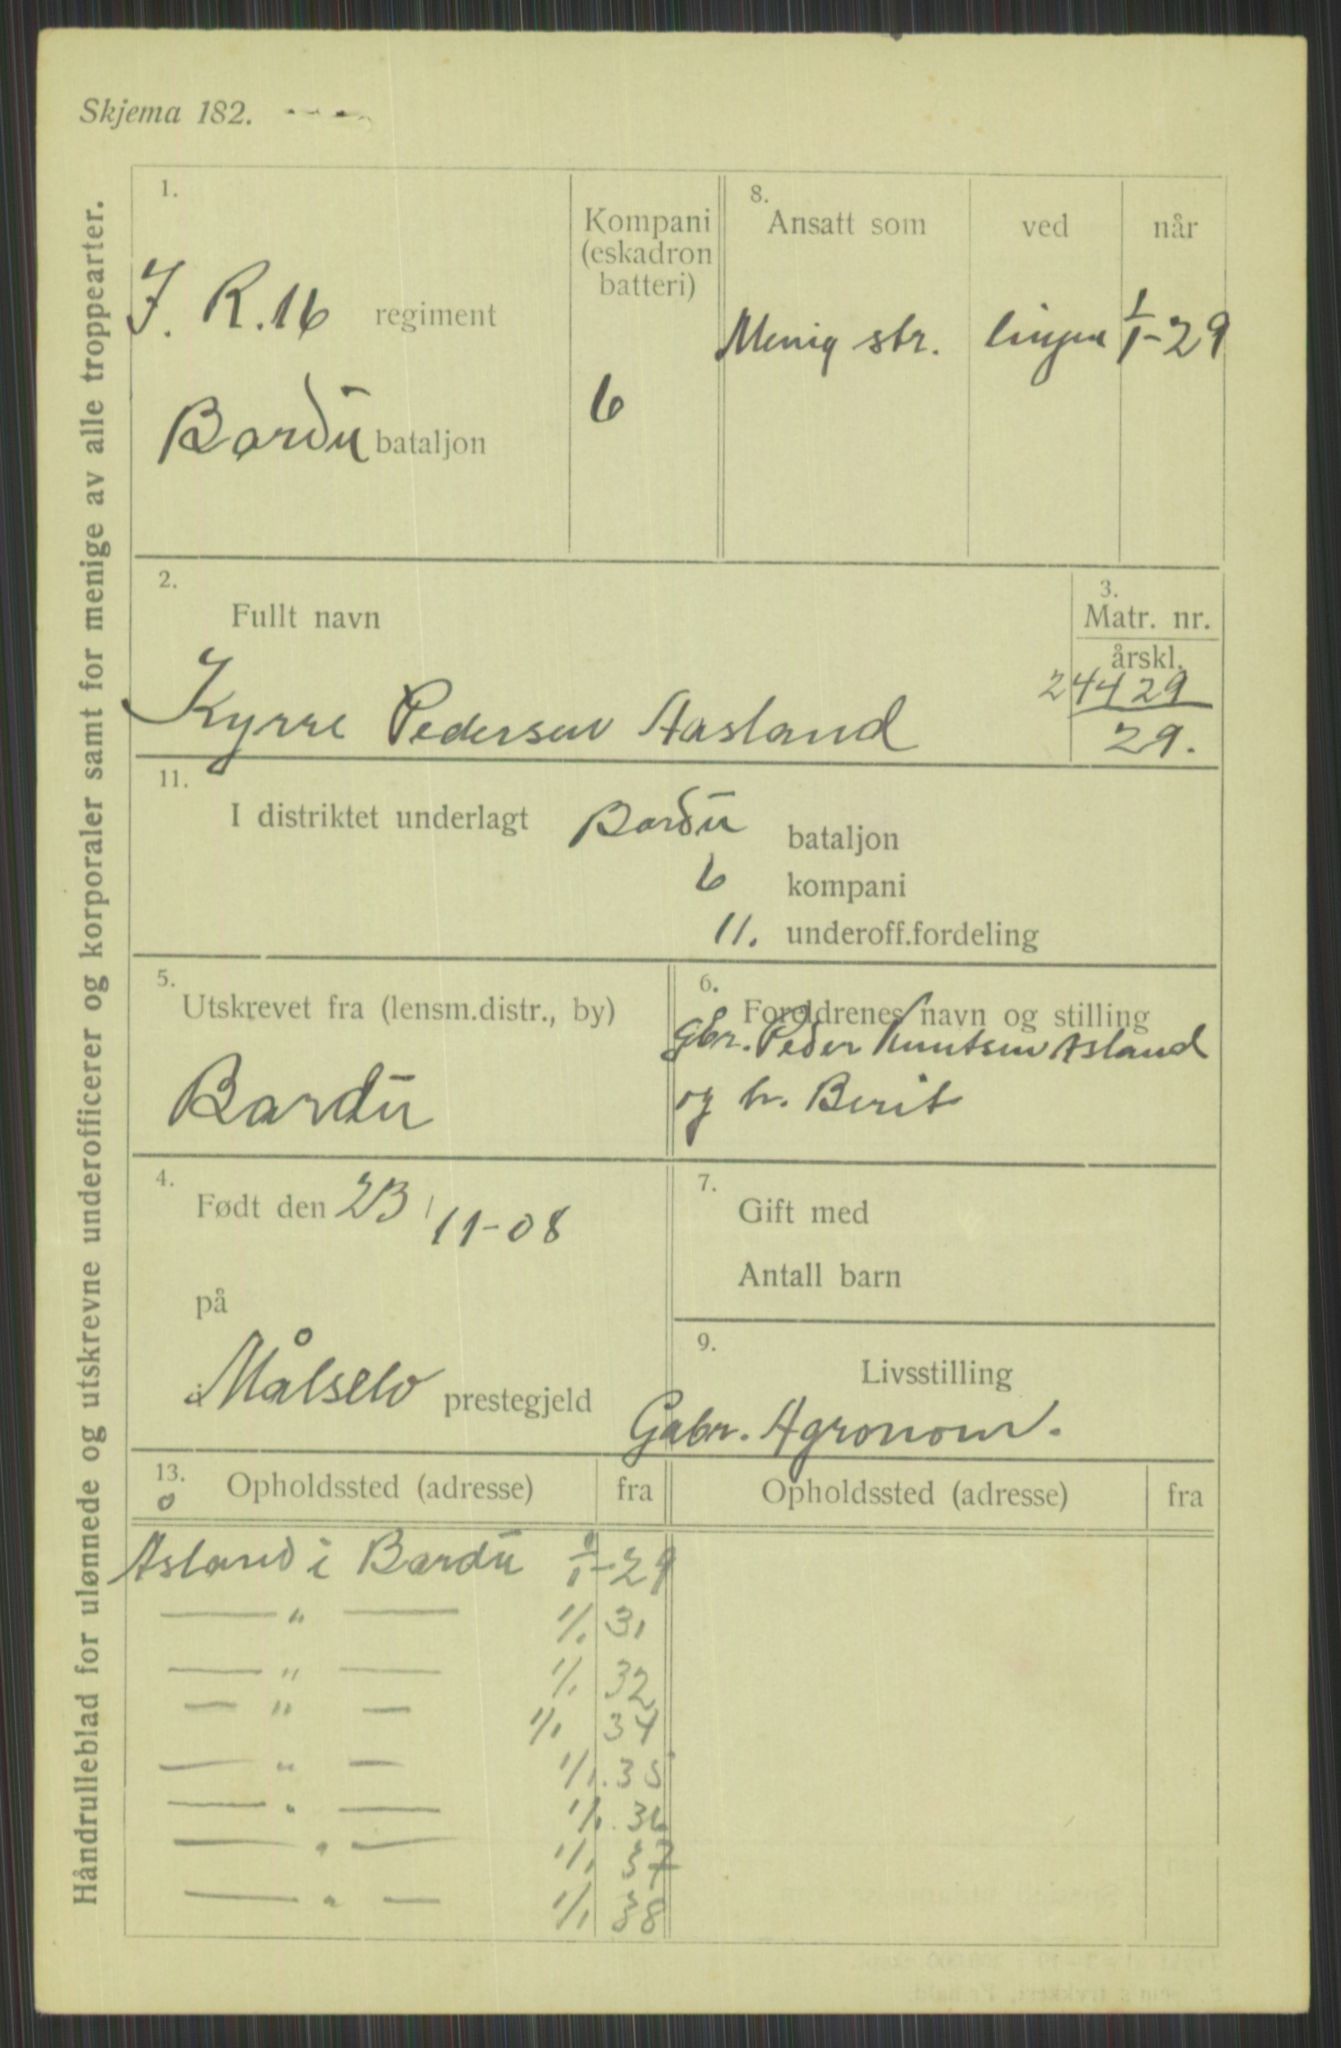 Skjema 182.
Håndrulleblad for ulønnede og utskrevne underofficerer og korporaler samt for menige av alle troppearter.
1.
J. R. 16 regiment
Bardu bataljon
Kompani
(eskadron
batteri)
6
8.
Ansatt som ved når
Menig str. linjen 1/1-29
2.
Fullt navn
Kyrre Pedersen Aasland
3.
Matr. nr.
årskl.
24429
29.
11.
I distriktet underlagt Bardu bataljon
6 kompani
11. underoff.fordeling
5.
Utskrevet fra (lensm.distr., by)
Bardu
6.
Foreldrenes navn og stilling
Gbr. Peder Knutsen Asland
og h. Berit
4.
Født den 23/11-08
på
i Målselv prestegjeld
7.
Gift med
Antall barn
9.
Livsstilling
Gabr. Agronom.
13.
Opholdssted (adresse) fra Opholdssted (adresse) fra
Åsland i Bardu 1/1-29
— " — 1/1 31
— " — 1/1 32
— " — 1/1 34
— " — 1/1. 35
— " — 1/1. 36
— " — 1/1 37
— " — 1/1 38